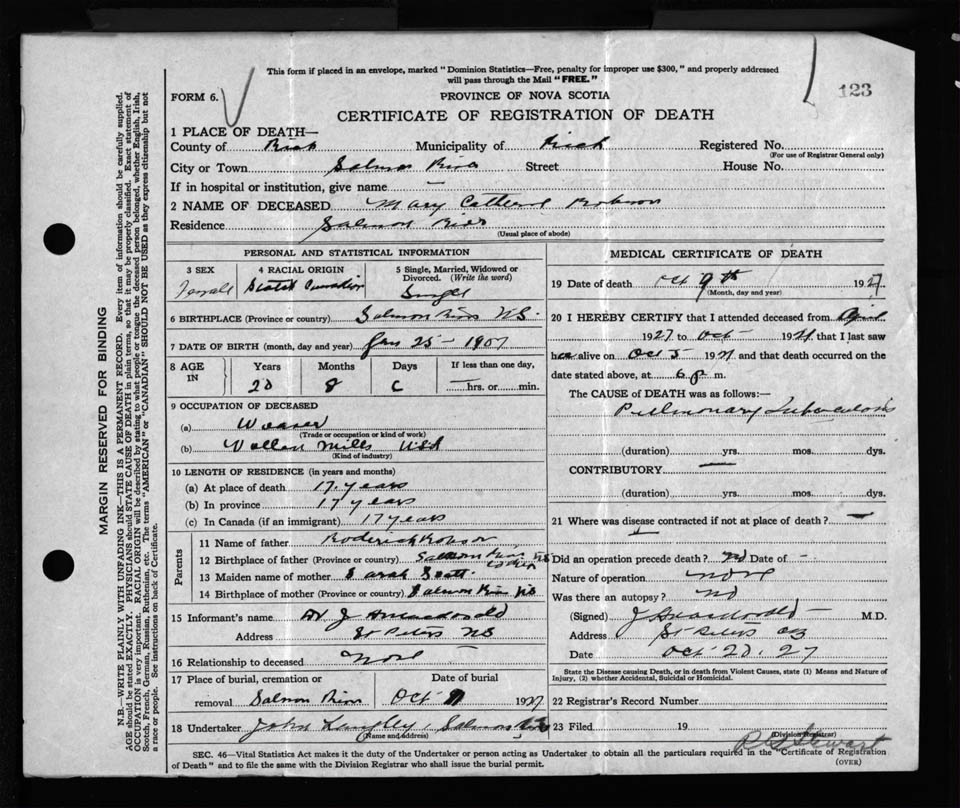 This form if placed in an envelope, marked "Dominion Statistics—Free, penalty for improper use $300," and properly addressed
will pass through the Mail "FREE."
123
FORM 6.
PROVINCE OF NOVA SCOTIA
CERTIFICATE OF REGISTRATION OF DEATH
1 PLACE OF DEATH—
County of Rich Municipality of Rich Registered No.
(For use of Registrar General only)
City or Town Salmon River Street House No.
If in hospital or institution, give name —
2 NAME OF DECEASED Mary Robson
Residence Salmon River
(Usual place of abode)
PERSONAL AND STATISTICAL INFORMATION
3 SEX Female
4 RACIAL ORIGIN Scotch
5 Single, Married, Widowed or Divorced. (Write the word) Single
6 BIRTHPLACE (Province or country) Salmon River N.S.
7 DATE OF BIRTH (month, day and year) Jan 25 - 1907
8 AGE IN Years 20 Months 8 Days If less than one day, — hrs. or min.
9 OCCUPATION OF DECEASED
(a) Weaver
(Trade or occupation or kind of work)
(b) Mills USA
(Kind of industry)
10 LENGTH OF RESIDENCE (in years and months)
(a) At place of death 17 years
(b) In province 17 years
(c) In Canada (if an immigrant) 17 years
Parents
11 Name of father Roderick Robson
12 Birthplace of father (Province or country) Salmon River NS
13 Maiden name of mother Sarah Scott
14 Birthplace of mother (Province or country) Salmon River NS
15 Informant's name
Address St Peters NS
16 Relationship to deceased None
17 Place of burial, cremation or removal Salmon River
Date of burial Oct 1927
18 Undertaker John Langley, Salmon River
(Name and address)
MEDICAL CERTIFICATE OF DEATH
19 Date of death Oct 9th 1927
(Month, day and year)
20 I HEREBY CERTIFY that I attended deceased from April
1927 to Oct 1927 that I last saw
her alive on Oct 5 1927 and that death occurred on the
date stated above, at 6 p m.
The CAUSE of DEATH was as follows:—
Pulmonary Tuberculosis
(duration) yrs. mos. dys.
CONTRIBUTORY —
(duration) yrs. mos. dys.
21 Where was disease contracted if not at place of death? —
Did an operation precede death? No Date of —
Nature of operation None
Was there an autopsy? No
(Signed) M.D.
Address St Peters CB
Date Oct 20. 27
State the Disease causing Death, or in death from Violent Causes, state (1) Means and Nature of
Injury, (2) whether Accidental, Suicidal or Homicidal.
22 Registrar's Record Number
23 Filed 19
Stewart
(Division Registrar)
SEC. 46—Vital Statistics Act makes it the duty of the Undertaker or person acting as Undertaker to obtain all the particulars required in the "Certificate of Registration
of Death" and to file the same with the Division Registrar who shall issue the burial permit.
(OVER)
MARGIN RESERVED FOR BINDING
N.B.—WRITE PLAINLY WITH UNFADING INK—THIS IS A PERMANENT RECORD. Every item of information should be carefully supplied.
AGE should be stated EXACTLY. PHYSICIANS should STATE CAUSE OF DEATH in plain terms, so that it may be properly classified. Exact statement of
OCCUPATION is very important. RACIAL ORIGIN will be described by stating to what people or tongue the deceased person belonged, whether English, Irish,
Scotch, French, German, Russian, Ruthenian, etc. The terms "AMERICAN" or "CANADIAN" SHOULD NOT BE USED as they express citizenship but not
a race or people. See instructions on back of Certificate.